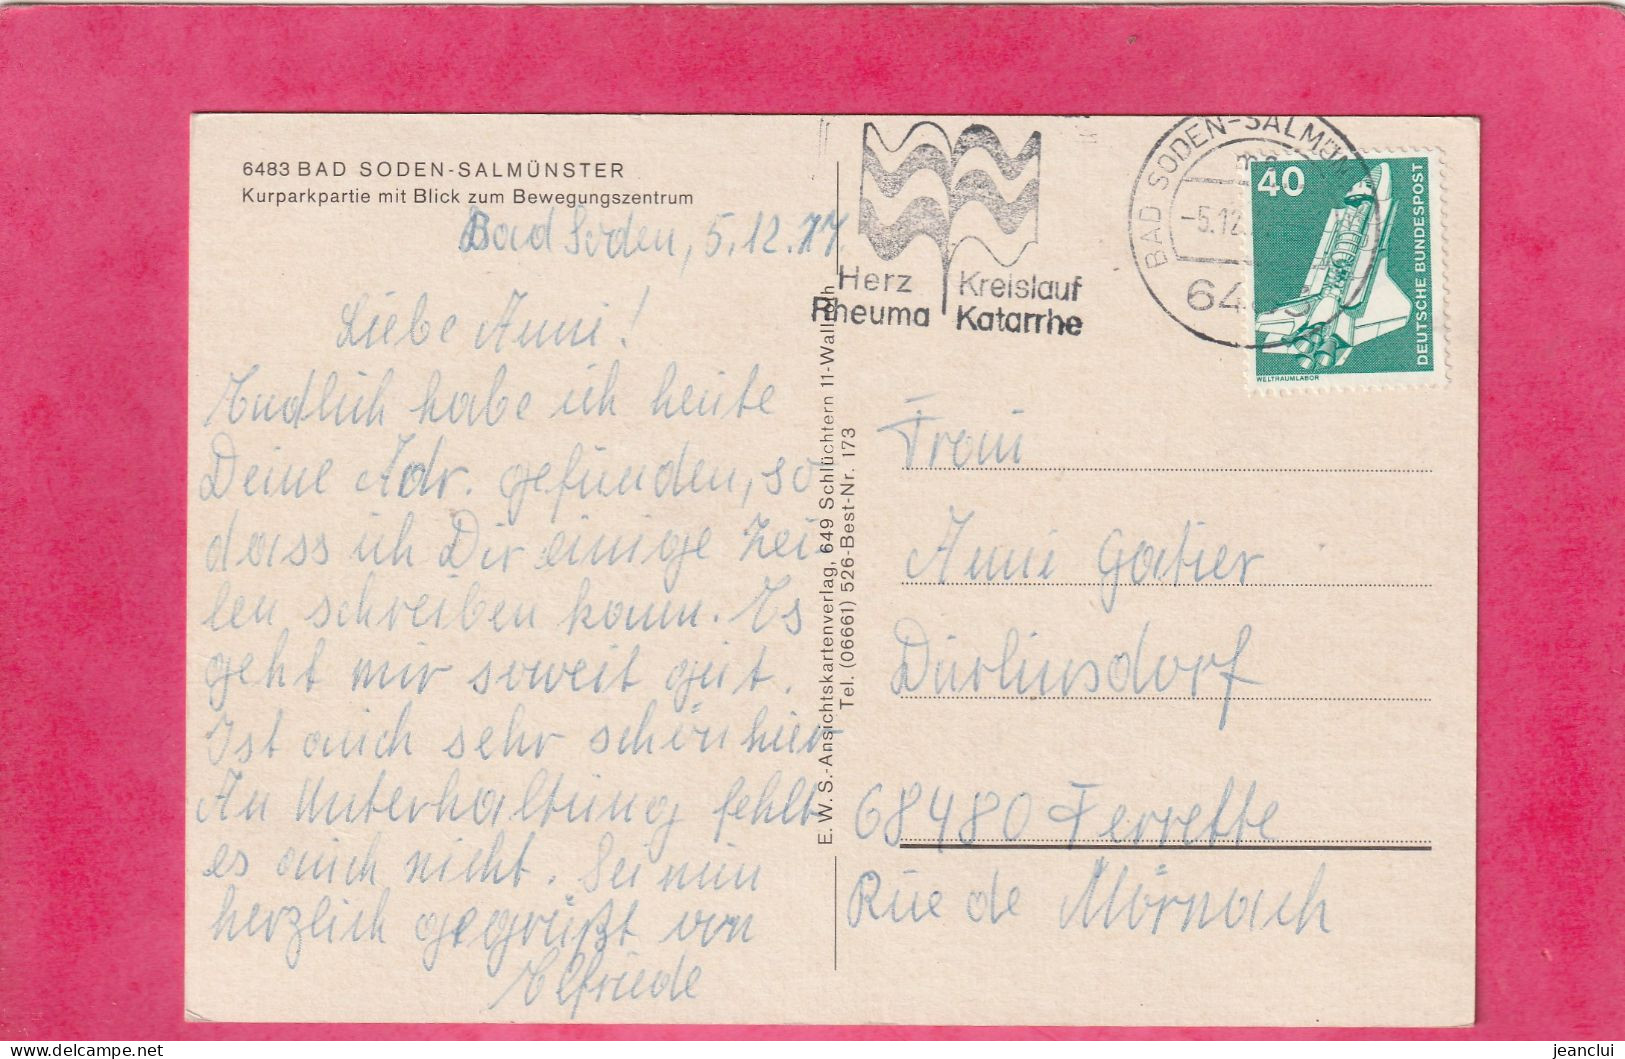 6483 BAD SODEN-SALMÜNSTER
Kurparkpartie mit Blick zum Bewegungszentrum
Bad Soden, 5.12.77.
Liebe Anni!
Endlich habe ich heute
Deine Adr. gefunden, so
dass ich Dir einige Zei-
len schreiben kann. Es
geht mir soweit gut.
Ist auch sehr schön hier
An Unterhaltung fehlt
es auch nicht. Sei nun
herzlich gegrüßt von
Elfriede
E.W.S.-Ansichtskartenverlag, 649 Schlüchtern 11-Wallroth
Tel. (06661) 526-Best-Nr. 173
Herz Kreislauf
Rheuma Katarrhe
BAD SODEN-SALMÜN
-5.12.
64
40
DEUTSCHE BUNDESPOST
WELTRAUMLABOR
Frau
Anni Gatier
Dürlinsdorf
68480 Ferrette
Rue de Mörnach
jeanclui